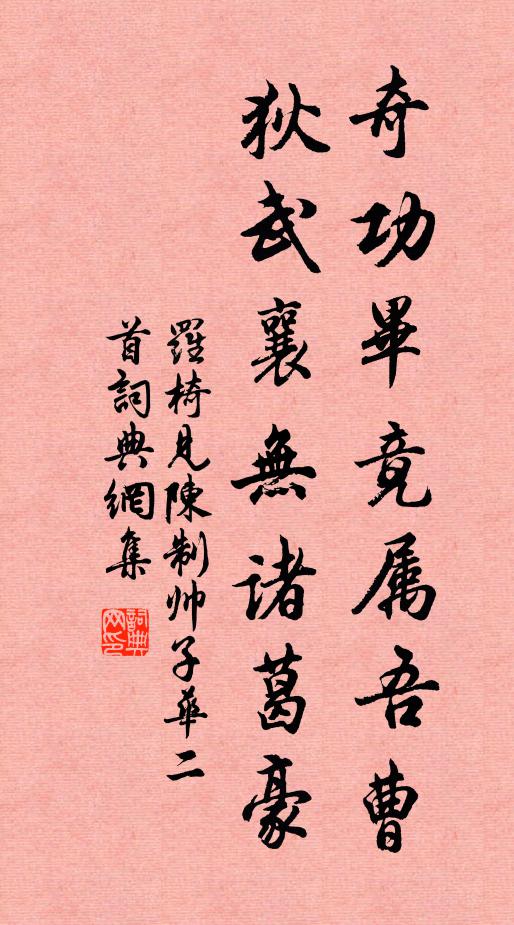 奇功畢竟属吾曹
狄武襄無諸葛豪
羅椅見陳制帅子華二
首詞典網集
詞典网印